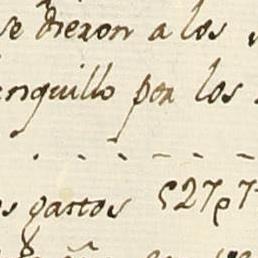 se dieron a los
enquillo por los
os gastos 527p7